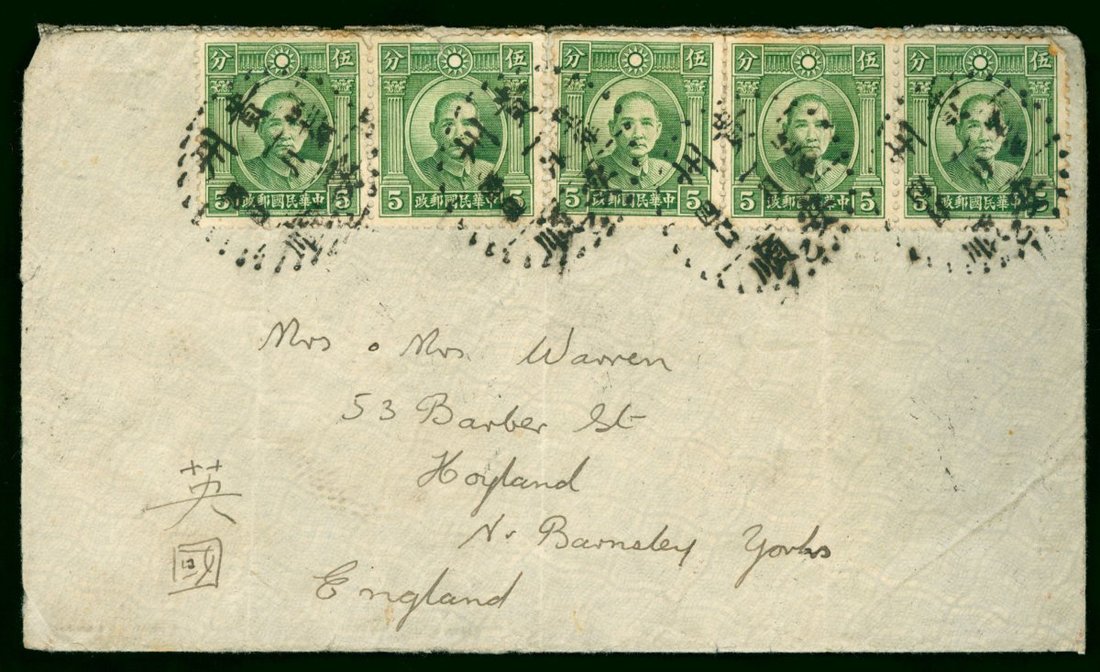 分 伍 分 伍 分 伍 分 伍 分 伍
5 政郵國民華中 5 5 政郵國民華中 5 5 政郵國民華中 5 5 政郵國民華中 5 5 政郵國民華中 5
Mrs & Mrs Warren
53 Barber St
Hoyland
Nr Barnsley Yorks
England
英
國